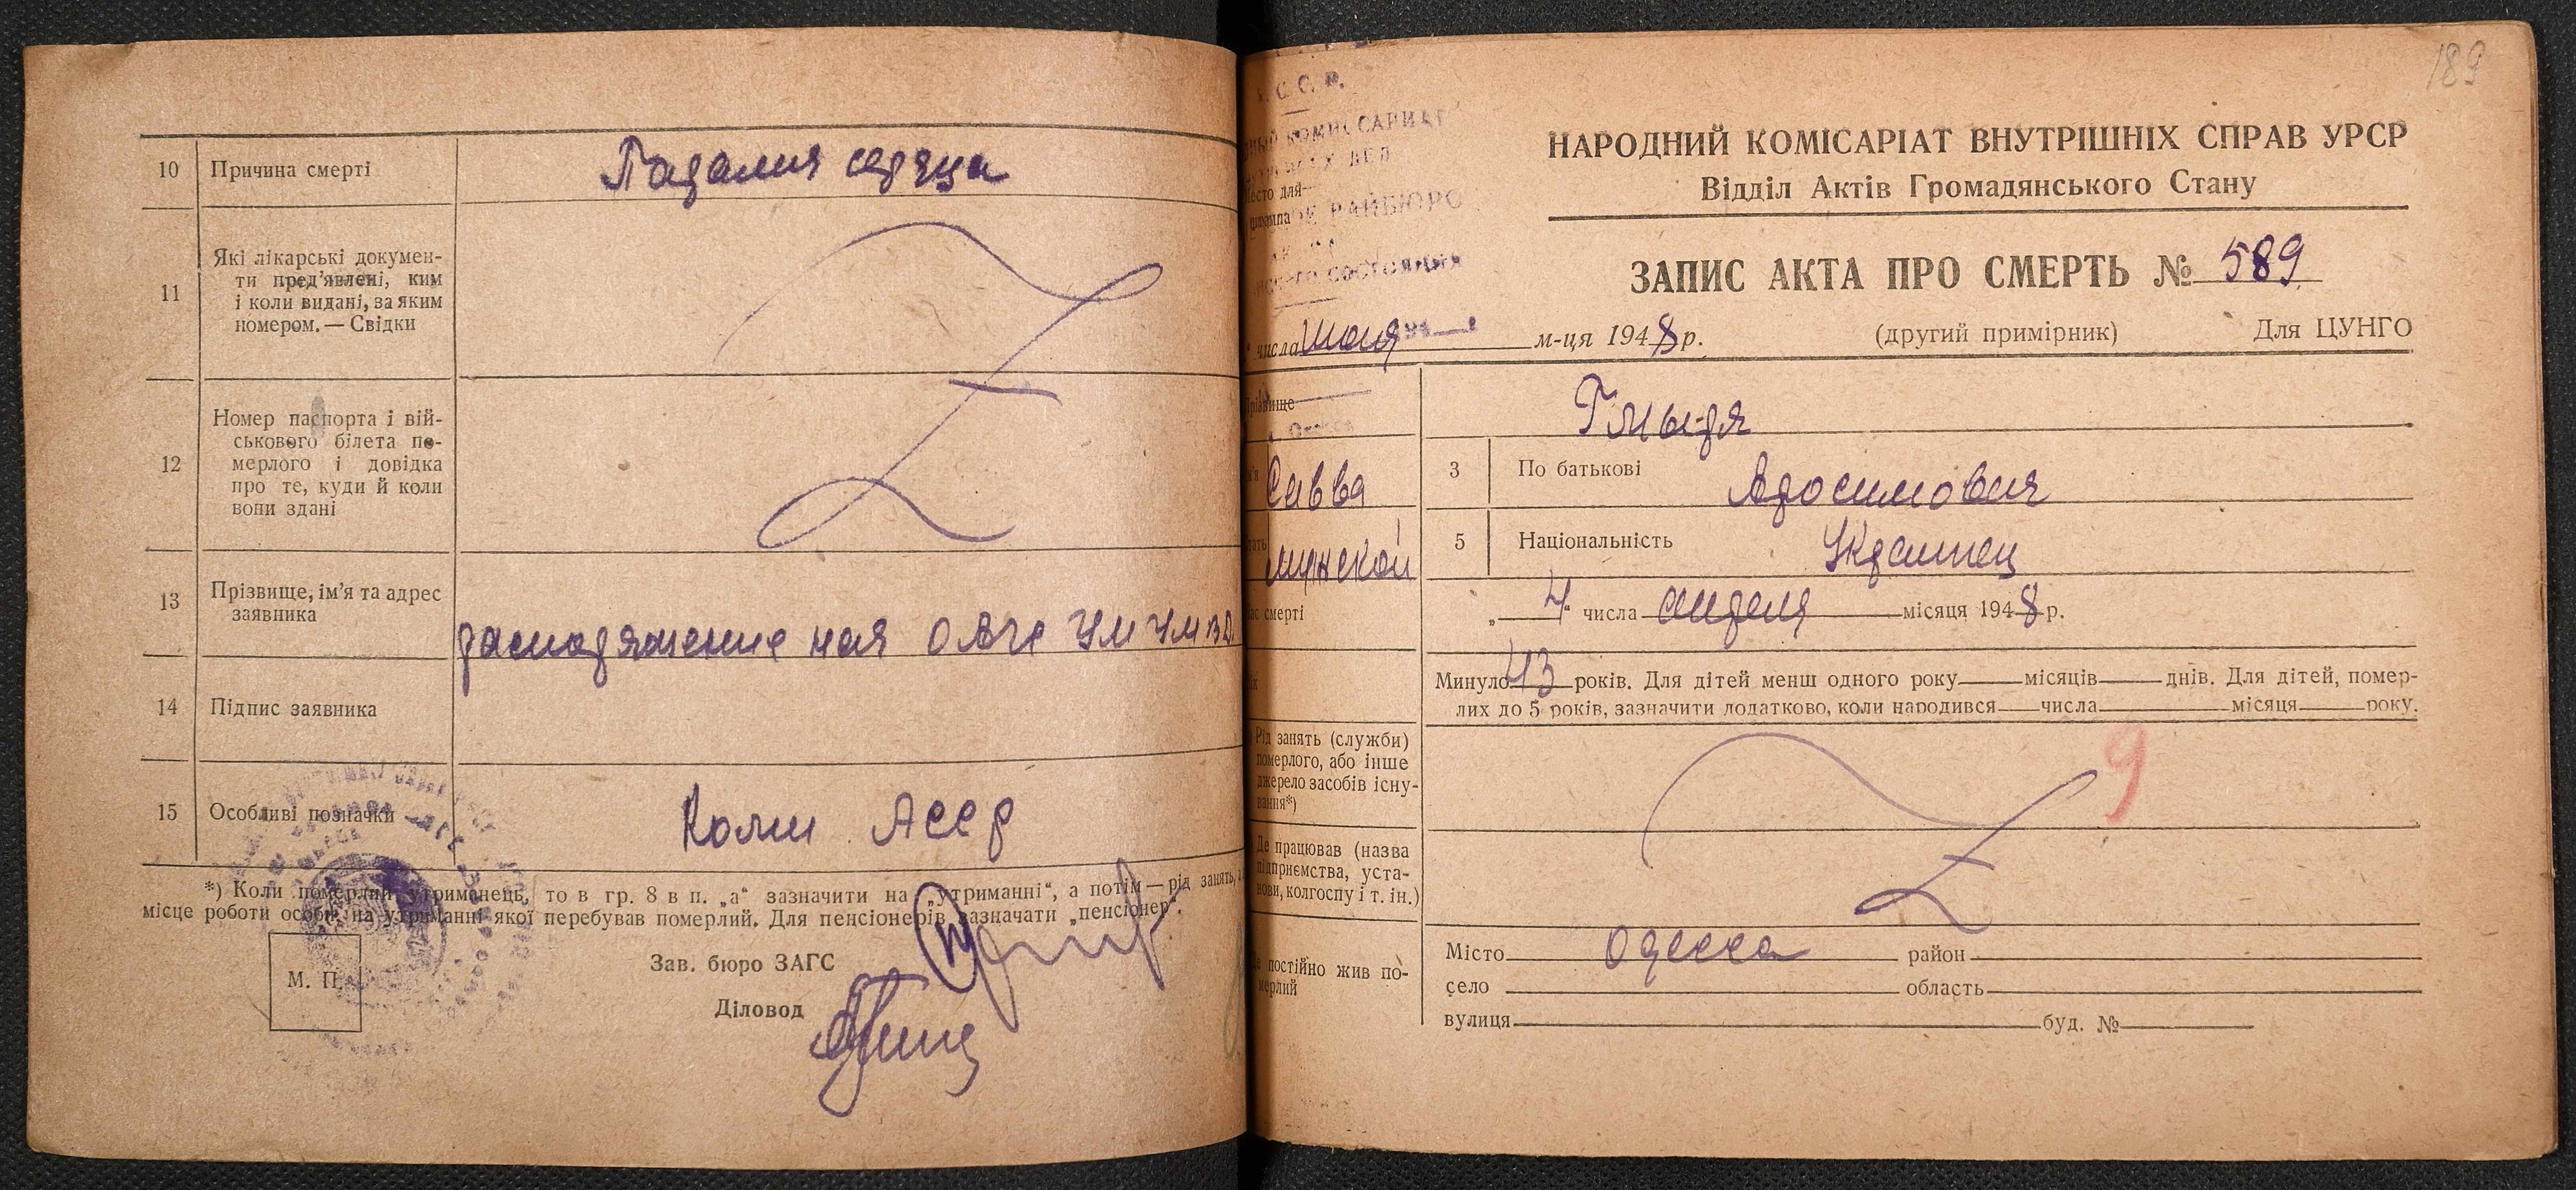 10 Причина смерти Паралич сердца
11 Які лікарські докумен-
ти пред'явлені, ким
і коли видані, за яким
номером. — Свідки
12 Номер паспорта і вій-
ськового білета по-
мерлого і довідка
про те, куди й коли
вони здані
13 Прізвище, ім'я та адрес
заявника
распоряжение нач ОАГС УМ УМВД
14 Підпис заявника
15 Особливі позначки Коми АССР
*) Коли померлий утриманець, то в гр. 8 в п. „а“ зазначити на „утриманні“, а потім — рід занять,
місце роботи особи, на утриманні якої перебував померлий. Для пенсіонерів зазначати „пенсіонер“.
М. П.
Зав. бюро ЗАГС
Діловод
189
НАРОДНИЙ КОМІСАРІАТ ВНУТРІШНІХ СПРАВ УРСР
Відділ Актів Громадянського Стану
ЗАПИС АКТА ПРО СМЕРТЬ № 589
числа м-ця 1948 р. (другий примірник) Для ЦУНГО
Савва
3 По батькові
мужской
5 Національність Украинец
смерті „4“ числа апреля місяця 1948 р.
Минуло 43 років. Для дітей менш одного року місяців днів. Для дітей, помер-
лих до 5 років, зазначити додатково, коли народився числа місяця року.
Рід занять (служби)
померлого, або інше
джерело засобів існу-
вання*)
9
Де працював (назва
підприємства, уста-
нови, колгоспу і т. ін.)
постійно жив по-
мерлий
Місто Одесса район
село область
вулиця буд. №